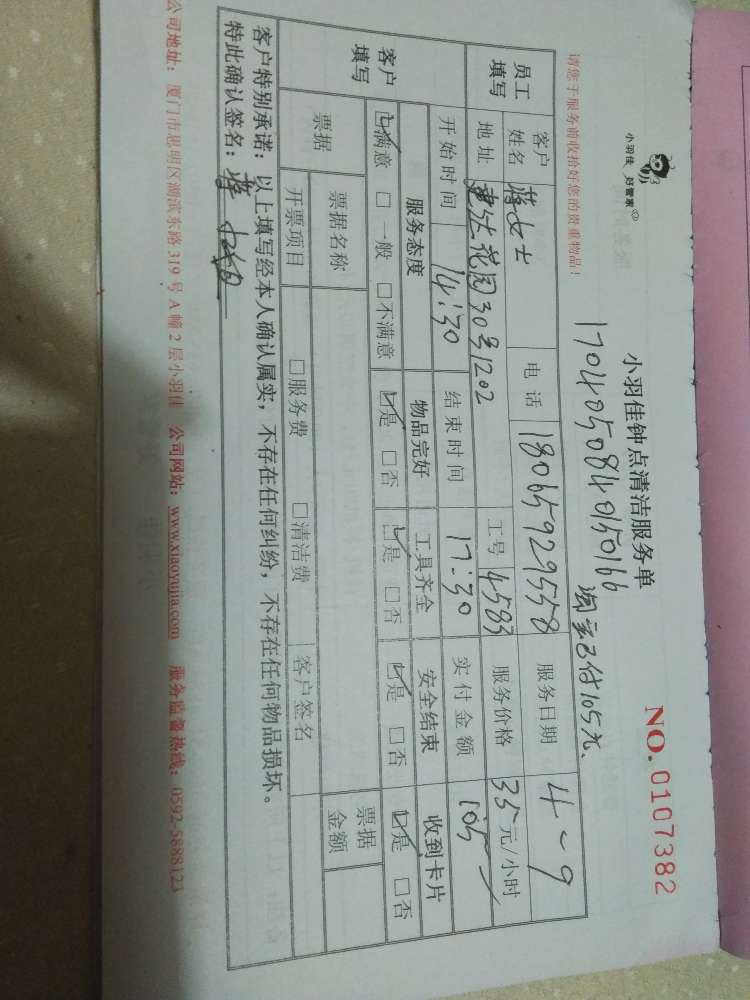 小羽佳 好管家
小羽佳钟点清洁服务单
NO.0107382
请您于服务前收拾好您的贵重物品！
1704050840150166 淘宝已付105元、
员工填写 客户姓名 蒋女士 电话 18065929558 服务日期 4-9
地址 建达花园30号1202 工号 4583 服务价格 35元/小时
开始时间 14:30 结束时间 17:30 实付金额 105
客户填写 服务态度 物品完好 工具齐全 安全结束 收到卡片
☑满意 □一般 □不满意 ☑是 □否 ☑是 □否 ☑是 □否 ☑是 □否
票据 票据名称 票据金额
开票项目 □服务费 □清洁费 客户签名
客户特别承诺：以上填写经本人确认属实，不存在任何纠纷，不存在任何物品损坏。
特此确认签名：
公司地址：厦门市思明区湖滨东路319号A幢2层小羽佳 公司网站：www.xiaoyujia.com 服务监督热线：0592-5888123